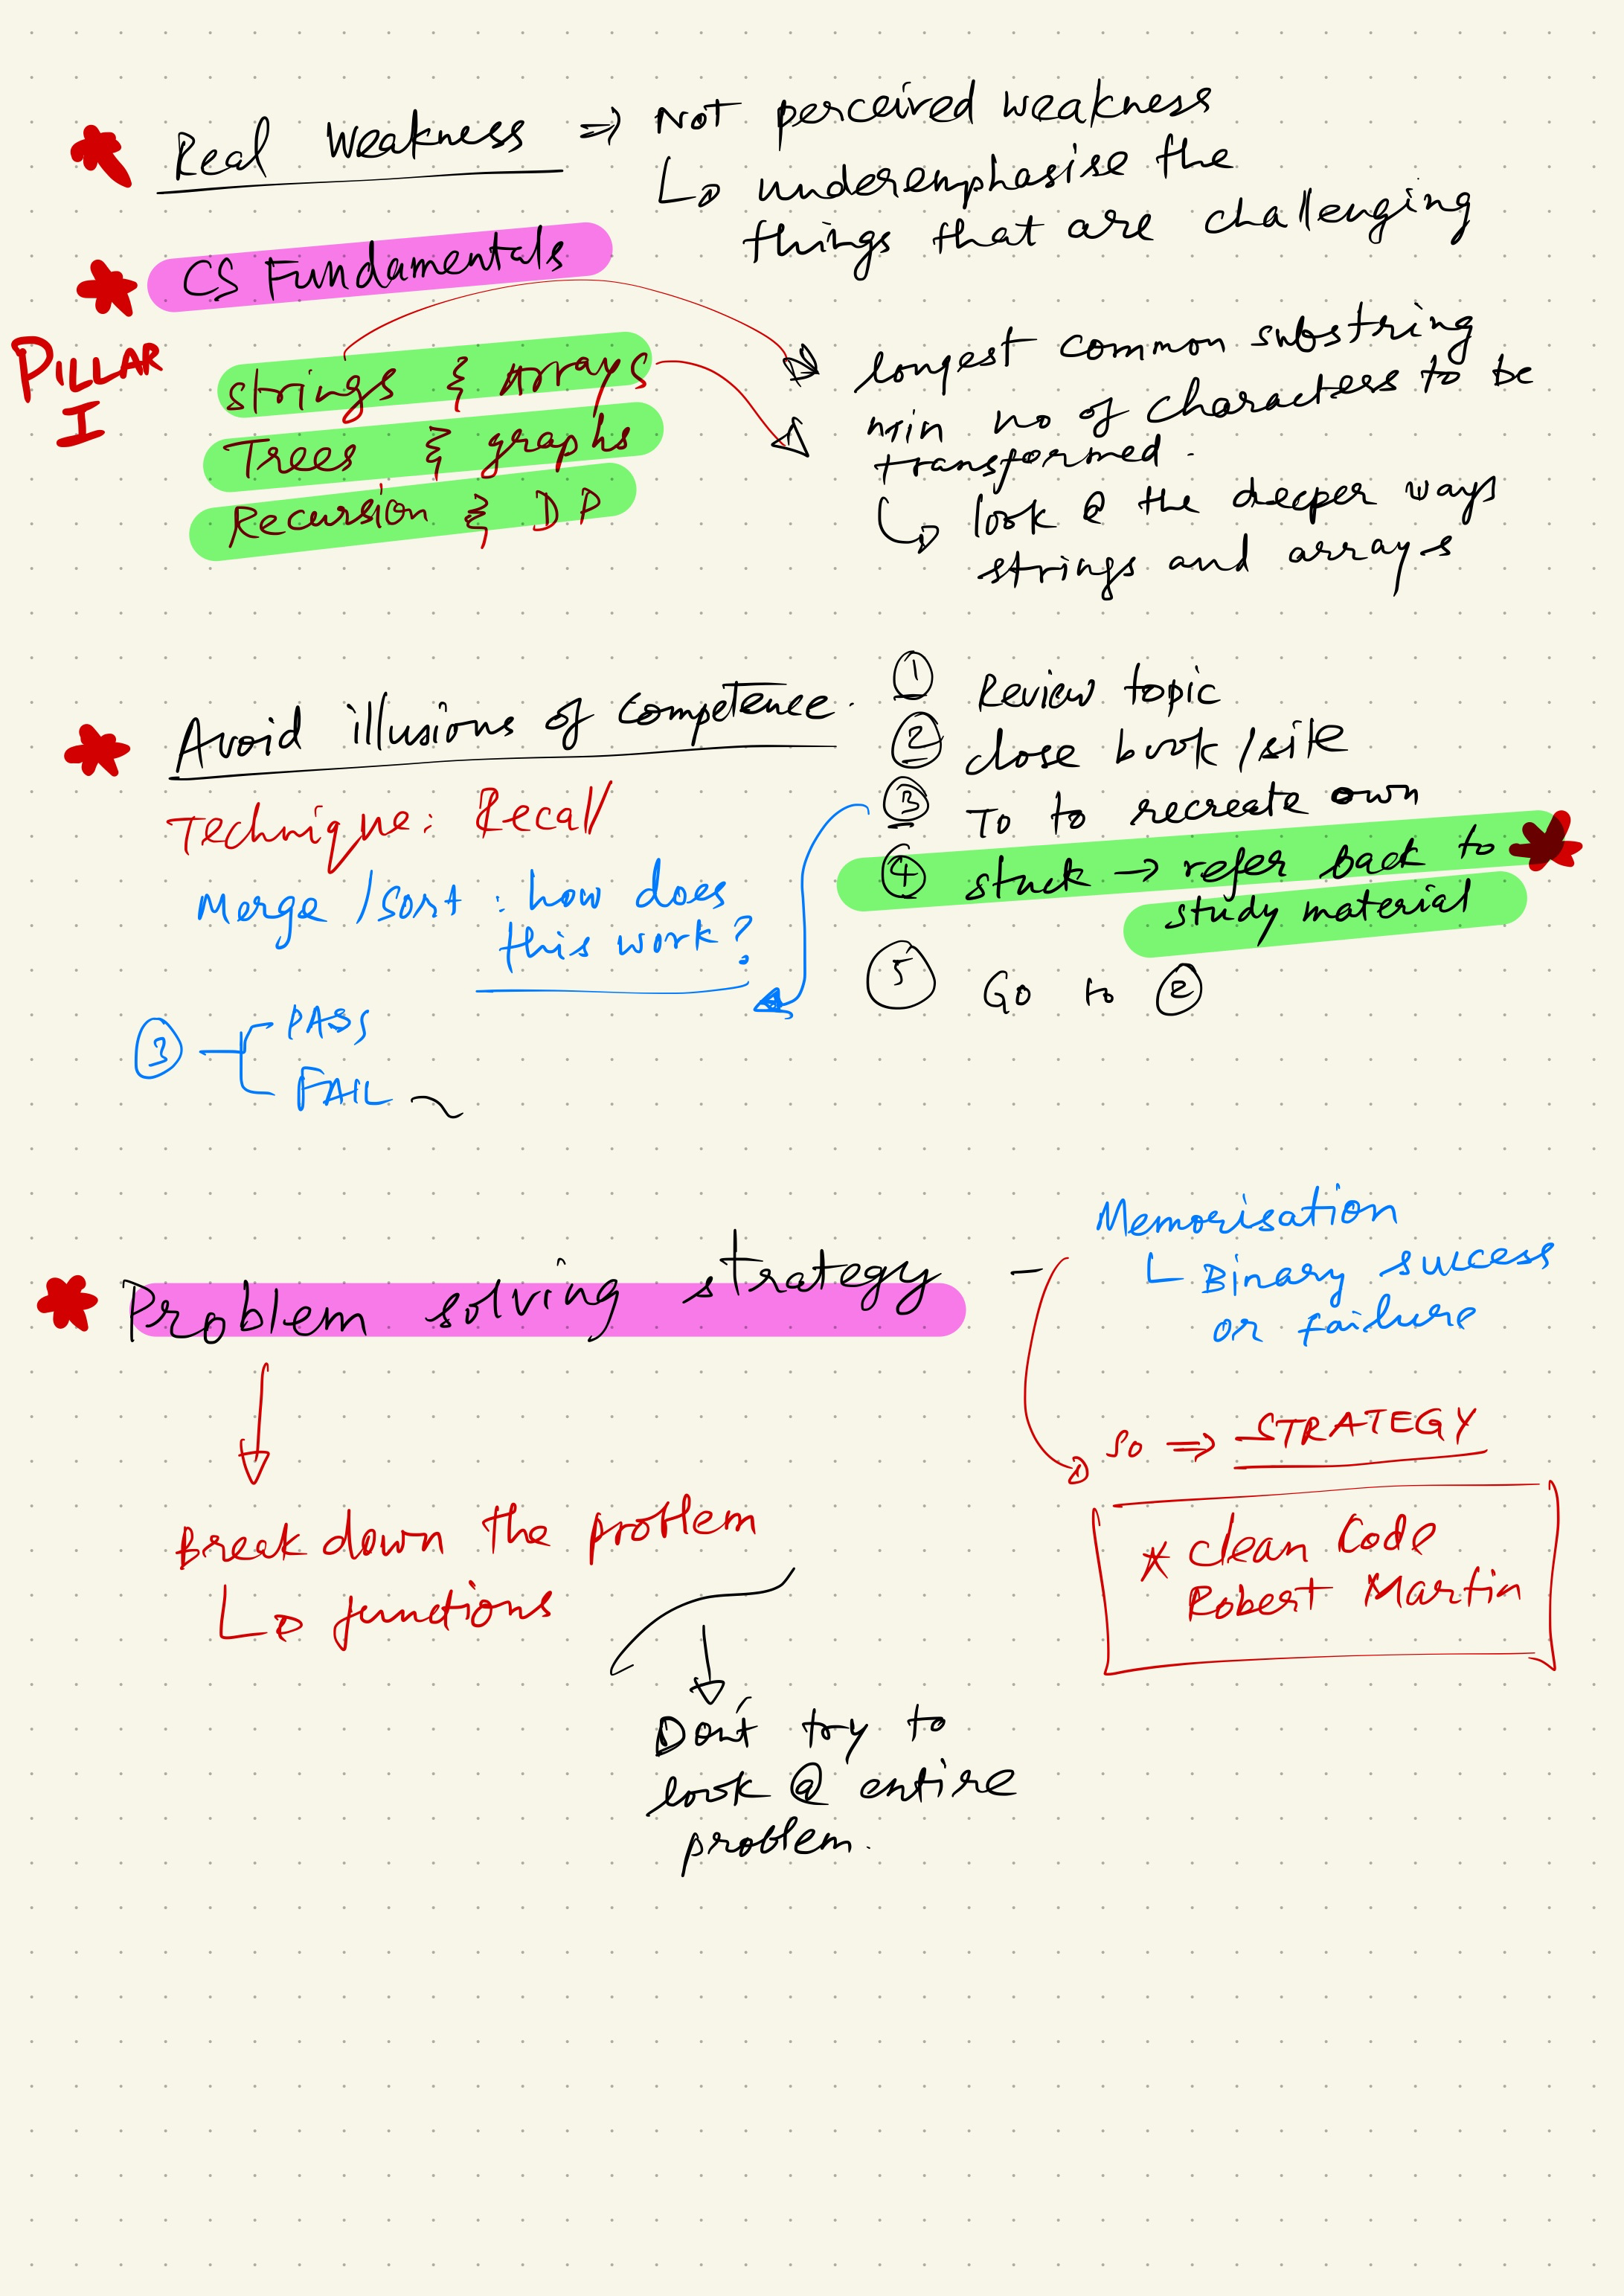 Real Weakness ⇒ Not perceived weakness
↳ underemphasise the
things that are challenging
CS Fundamentals
PILLAR
I
strings & Arrays
Trees & graphs
Recursion & DP
longest common substring
min no of characters to be
transformed.
↳ look @ the deeper ways
strings and arrays
Avoid illusions of competence.
Technique: Recall
Merge /Sort : how does
this work?
③ PASS
FAIL
① Review topic
② close book /site
③ To to recreate own
④ stuck → refer back to
study material
⑤ Go to ②
Problem solving strategy –
Memorisation
Binary success
or failure
so ⇒ STRATEGY
* Clean Code
Robert Martin
Break down the problem
↳ functions
Don't try to
look @ entire
problem.